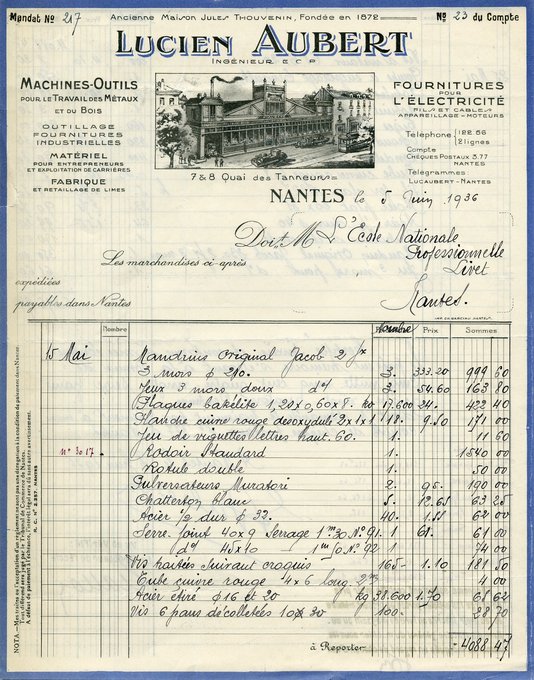 Mandat No 217
Ancienne Maison Jules Thouvenin, Fondée en 1872
No 23 du Compte
LUCIEN AUBERT
INGÉNIEUR E.C.P
MACHINES-OUTILS
POUR LE TRAVAIL DES MÉTAUX
ET DU BOIS
OUTILLAGE
FOURNITURES
INDUSTRIELLES
MATÉRIEL
POUR ENTREPRENEURS
ET EXPLOITATION DE CARRIÈRES
FABRIQUE
ET RETAILLAGE DE LIMES
FOURNITURES
POUR
L'ÉLECTRICITÉ
FILS ET CABLES
APPAREILLAGE - MOTEURS
Téléphone 122.56
2 lignes
Compte
Chèques Postaux 3.77
NANTES
Télégrammes
LUCAUBERT - NANTES
7 & 8 Quai des Tanneurs
NANTES le 5 Juin 1936
Doit M L'Ecole Nationale
Professionnelle
Livet
Nantes.
Les marchandises ci-après
expédiées
payables dans Nantes
Nombre Nombre Prix Sommes
15 Mai Mandrins Original Jacob 2 fx
3 mors φ 210. 3. 333.20 999 60
Jeux 3 mors doux do 3. 54.60 163 80
Plaques bakélite 1,20 x 0,60 x 8. ko 17.600 24. 422 40
Planche cuivre rouge desoxydulé 2x1x1 18. 9.50 171 00
Jeu de vignettes lettres haut. 60. 1. 11 60
no 3017 Rodoir Standard 1. 1540 00
Rotule double 1. 50 00
Pulversateurs Muratori 2. 95. 190 00
Chatterton blanc 5. 12.65 63 25
Acier 1/2 dur φ 32. 40. 1.55 62 00
Serre joint 40 x 9 Serrage 1m30 No 91. 1. 61. 61 00
do 45x10 - 1m50 No 92 1. 74 00
Vis hautées suivant croquis 165- 1.10 181 50
Tube cuivre rouge 4 x 6 long. 2m 4 00
Acier étiré φ 16 et 20 kg 38.600 1.70 65 62
Vis 6 pans décolletées 10 x 30 100- 28 70
à Reporter 4088 47